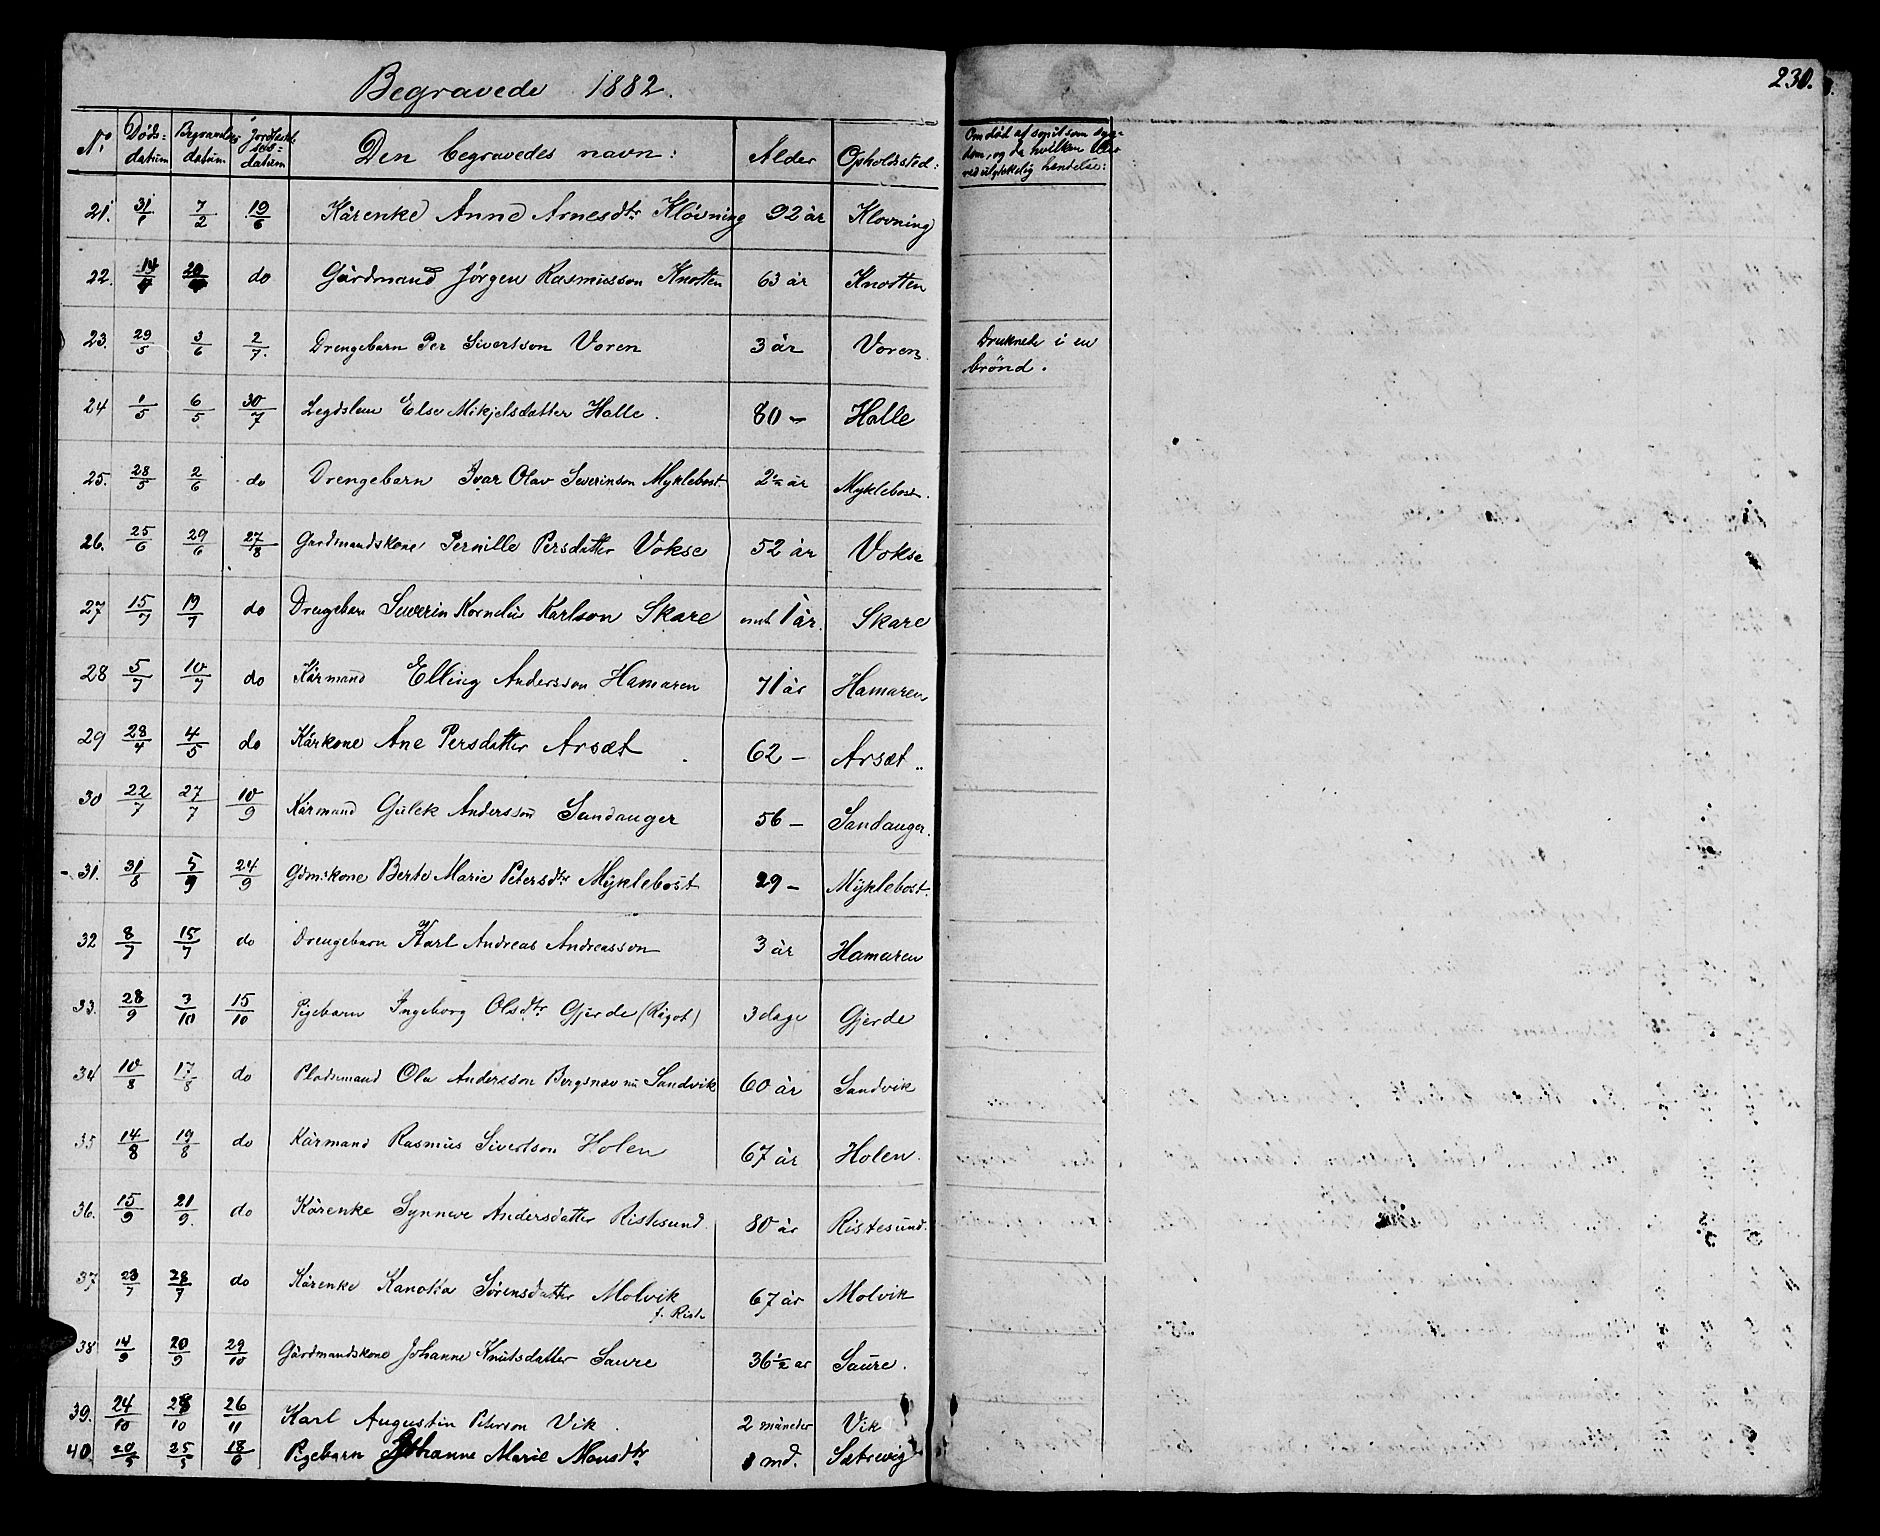 230.
Begravede 1882.
No Døds-datum Begravelses datum Jordfæstelses-datum Den begravedes navn: Alder Opholdssted: Om død af epidemisk sygdom, og da hvilken eller ved ulykkelig hendelse:
21. 31/1 7/2 19/6 Kårenke Anne Arnesdtr Kløvning 92 år Kløvning
22. 14/4 20/4 do Gårdmand Jørgen Rasmusson Knotten 63 år Knotten
23. 29/5 3/6 2/7. Drengebarn Per Sivertson Voren 3 år Voren. Druknede i en brønd.
24 1/5 6/5 30/7 Legdslem Else Mikjelsdatter Halle. 80 – Halle
25. 28/5 2/6 do Drengebarn Ivar Olav Severinson Myklebost. 2½ år Myklebost.
26. 25/6 29/6 27/8 Gardmandskone Pernille Persdatter Vokse 52 år Vokse
27 15/7 19/7 do Drengebarn Severin Kornelius Karlson Skare omt 1 år. Skare
28 5/7 10/7 do Kårmand Elling Andersson Hamaren 71 år Hamaren
29 28/4 4/5 do Kårkone Ane Persdatter Arsæt 62 – Arsæt
30 22/7 27/7 10/9 Kårmand Gulek Andersson Sandanger 56 – Sandanger.
31. 31/8 5/9 24/9 Gdmskone Berte Marie Petersdtr Myklebost 29 – Myklebost.
32 8/7 15/7 do Drengebarn Karl Andreas Andreasson 3 år Hamaren
33. 28/9 3/10 15/10 Pigebarn Ingeborg Olsdtr Gjerde (Rågot) 3 dage Gjerde
34 10/8 17/8 do Pladsemand Ola Andersson Bergsnæv nu Sandvik 60 år Sandvik
35 14/8 19/8 do Kårmand Rasmus Sivertson Holen 67 år Holen.
36. 15/9 21/9. do Kårenke Synneve Andersdatter Ristesund. 80 år Ristesund.
37 23/7 28/7 do Kårenke Kanota Sørensdatter Molvik 67 år Molvik
f. Riste
38 14/9 20/9 29/10 Gårdmandskone Johanne Knutsdatter Saure 36½ år Saure.
39. 24/10 28/10 26/11 Karl Augustin Peterson Vik. 2 måneder Vik
40. 20/5 25/5 18/6 Pigebarn Johanne Marie Monsdtr 1 md. Sætrevig